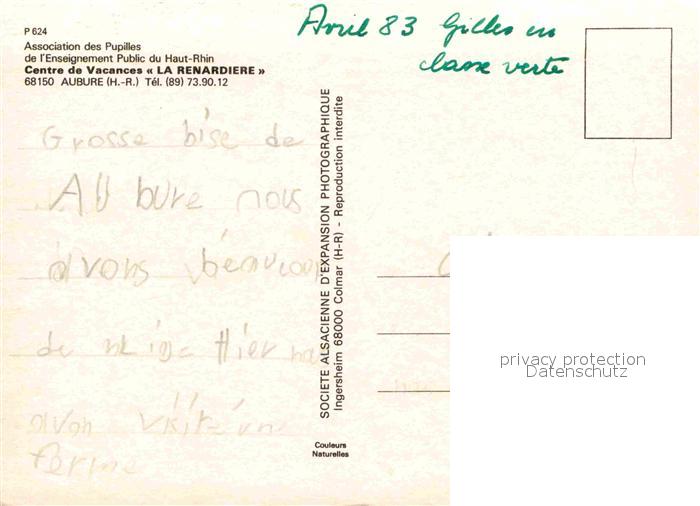 P 624
Association des Pupilles
de l'Enseignement Public du Haut-Rhin
Centre de Vacances « LA RENARDIERE »
68150 AUBURE (H.-R.) Tél. (89) 73.90.12
Avril 83 Gilles en
classe verte
Grosse bise de
Au bure nous
avons beaucoup
de Hier
avon visité un
ferme
SOCIETE ALSACIENNE D'EXPANSION PHOTOGRAPHIQUE
Ingersheim 68000 Colmar (H-R) - Reproduction interdite
Couleurs
Naturelles
privacy protection
Datenschutz